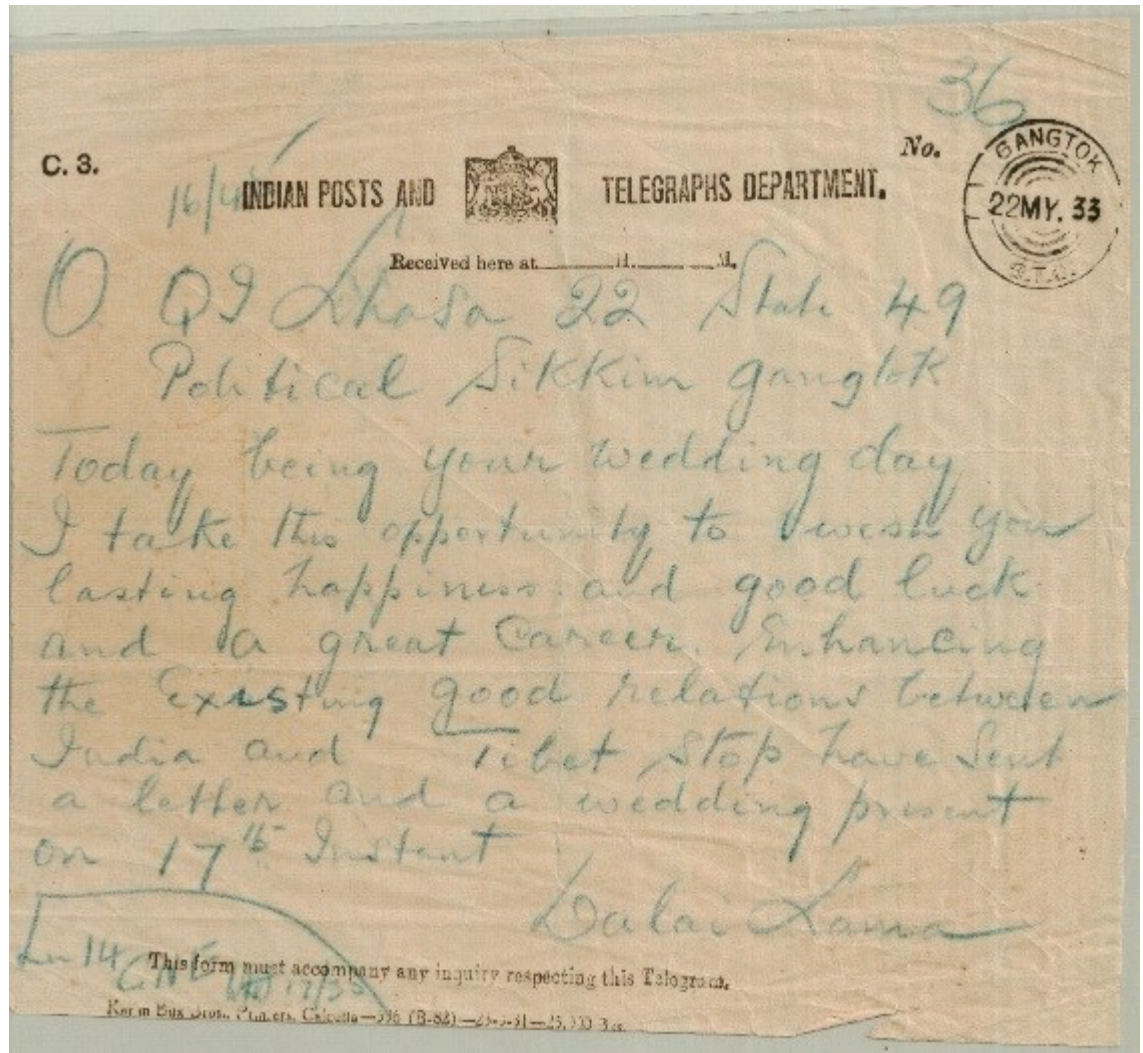 36
C. 3.
No.
GANGTOK
22MY. 33
16/4
INDIAN POSTS AND TELEGRAPHS DEPARTMENT.
Received here at H. M.
O QI Lhasa 22 State 49
Political Sikkim Gangtok
Today being your wedding day
I take this opportunity to wish you
lasting happiness and good luck
and a great career. Enhancing
the Existing good relations between
India and Tibet Stop have sent
a letter and a wedding present
on 17th Instant
Dalai Lama
14
This form must accompany any inquiry respecting this Telegram.
Printers, Calcutta